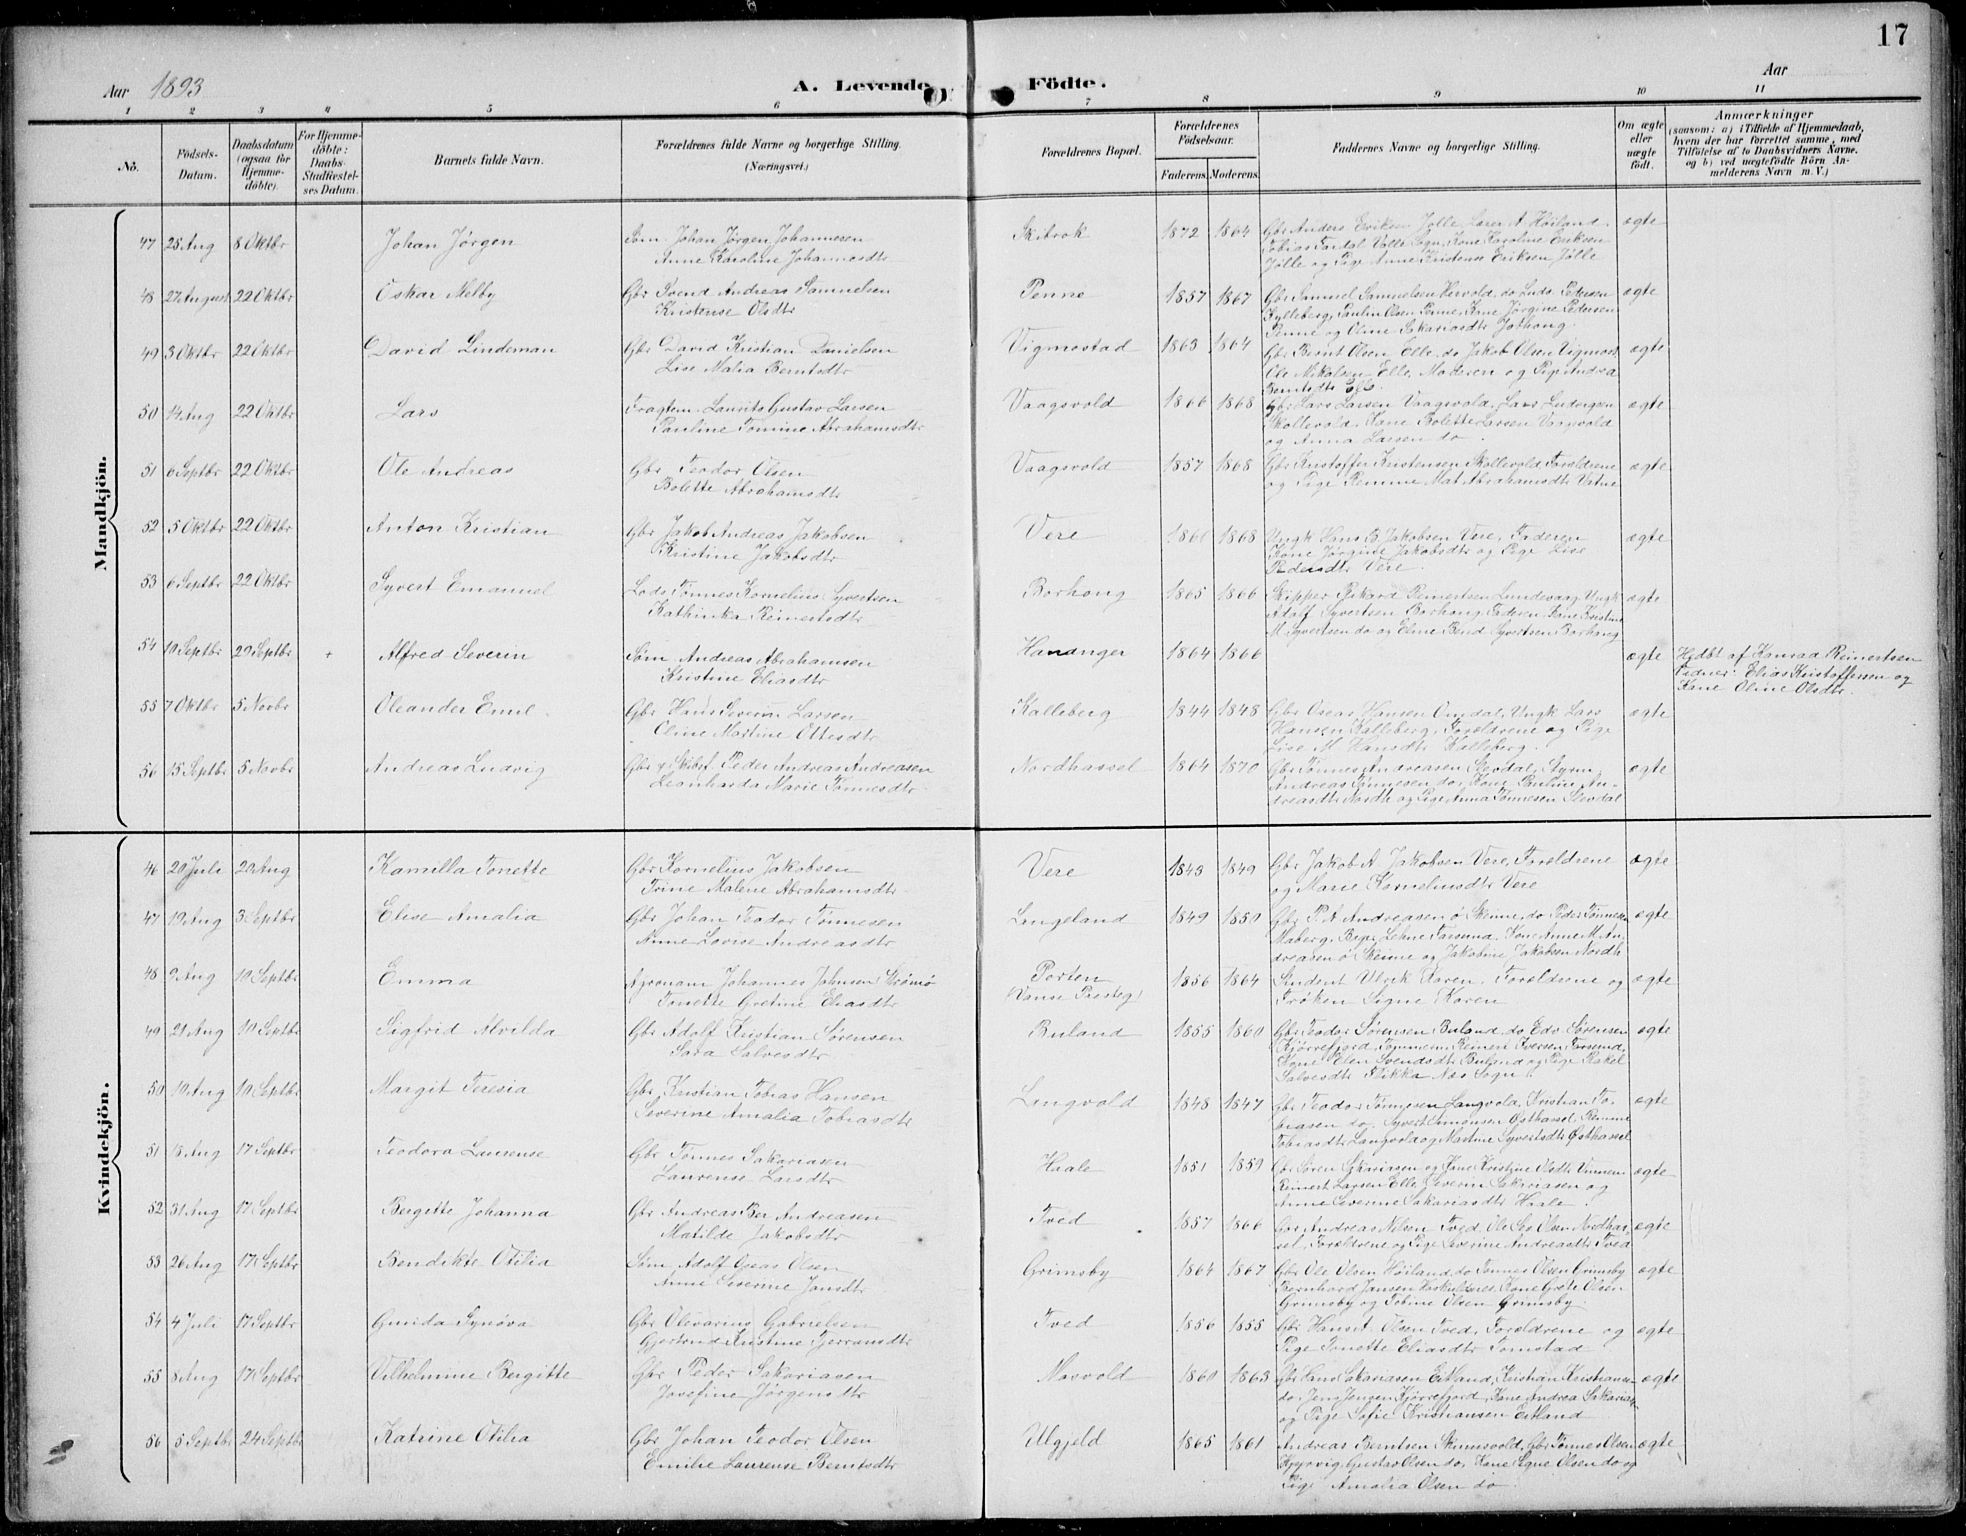 17
Aar 1893
A. Levende Födte.
Aar
1 2 3 4 5 6 7 8 9 10 11
No.
Födsels-Datum.
Daabsdatum (ogsaa for Hjemme-döbte).
For Hjemme-döbte: Daabs-Stadfæstel-ses Datum.
Barnets fulde Navn.
Forældrenes fulde Navne og borgerlige Stilling. (Næringsvei.)
Forældrenes Bopæl.
Forældrenes Födselsaar.
Faderens. Moderens.
Faddernes Navne og borgerlige Stilling.
Om ægte eller uægte födt.
Anmærkninger
(saasom: a) i Tilfælde af Hjemmedaab, hvem der har forrettet samme, med Tilföielse af to Daabsvidners Navne, og b) ved uægtefödte Börn An-melderens Navn m. V.)
Mandkjön.
47 28 Aug 8 Oktbr Johan Jørgen Søm. Johan Jørgen Johannesen Skibrok 1872 1864 Gbr Anders Eriksen Jølle, Lærer A Høiland, ægte
Anne Karoline Johannesdtr Tobias Tardal Valle Sogn, Kone Karoline Eriksen
Jølle og Pige Anne Kristense Eriksen Jølle
48 27 August 22 Oktbr Oskar Melby Gbr Svend Andreas Samuelsen Penne 1857 1867 Gbr Samuel Samuelsen Hervold, do Ludv. Pedersen ægte
Kristense Olsdtr Kylleberg, Paulin Olsen Penne, Kone Jørgine Pedersen
Penne og Oline Sakariasdtr Jothong.
49 3 Oktbr 22 Oktbr David Lindeman Gbr David Kristian Danielsen Vigmostad 1863 1864 Gbr Bernt Olsen Elle, do Jakob Olsen Vigmost ægte
Lise Malia Berntsdtr Ole Mikalsen Elle, Moderen og Pige Andrea
Berntsdtr Elle.
50 14 Aug 22 Oktbr Lars Fragtem. Laurits Gustav Larsen Vaagsvold 1866 1868 Gbr Lars Larsen Vaagsvold, Lars Ludvigsen ægte
Pauline Tomine Abrahamsdtr Skollevold, Kone Bolette Larsen Vaagsvold
og Anna Larsen do.
51 6 Septbr 22 Oktbr Ole Andreas Gbr Teodor Olsen Vaagsvold 1857 1868 Gbr Kristoffer Kristensen Skollevold, Forældrene ægte
Bolette Abrahamsdtr og Pige Remine Mat. Abrahamsdtr Vatne
52 5 Oktbr 22 Oktbr Anton Kristian Gbr Jakob Andreas Jakobsen Vere 1860 1868 Ungk Hans B Jakobsen Vere, Faderen ægte
Kristine Jakobsdtr Kone Jørgine Jakobsdtr og Pige Lise
Pedersdtr Vere.
53 6 Septbr 22 Oktbr Syvert Emanuel Lods Tønnes Kornelius Syvertsen Borhong 1865 1866 Skipper Rikard Reinertsen Lundevaag, Ungk ægte
Kathinka Reinertsdtr Adolf Syvertsen Borhong, Faderen, Kone Kristine
M. Syvertsen do og Eline Bend. Syvertsen Borhong
54 10 Septbr 29 Septbr + Alfred Severin Søm. Andreas Abrahamsen Hananger 1864 1866 ægte Hjdbt af Konrad Reinertsen
Kristine Eliasdtr Vidner: Elias Kristoffersen og
Kone Oline Olsdtr.
55 7 Oktbr 5 Novbr Oleander Emil Gbr Hans Severin Larsen Kalleberg 1844 1848 Gbr Oscar Hansen Omdal, Ungk Lars ægte
Oline Martine Ottesdtr Hansen Kalleberg, Forældrene og Pige
Lise M. Hansdtr Kalleberg.
56 15 Septbr 5 Novbr Andreas Ludvig Gbr & Skibst. Peder Andreas Andreasen Nordhassel 1864 1870 Gbr Tønnes Andreasen Stevdal, Styrm. ægte
Leonharda Marie Tønnesdtr Andreas Tønnesen do, Kone Pauline An-
dreasdtr Nordh. og Pige Anna Tønnesen Stevdal
Kvindekjön.
46 20 Juli 20 Aug Kamilla Tonette Gbr Kornelius Jakobsen Vere 1843 1849 Gbr Jakob A Jakobsen Vere, Forældrene ægte
Trine Malene Abrahamsdtr og Marie Korneliusdtr Vere
47 19 Aug 3 Septbr Elise Amalia Gbr Johan Teodor Tønnesen Langeland 1849 1850 Gbr P. A. Andreasen ø Skeime, do Peder Tønnesen ægte
Anne Lovise Andreasdtr Maberg, Lehne Farsund, Kone Anne M. An-
dreasen ø Skeime og Jakobine Jakobsen Nordh
48 9 Aug 10 Septbr Emma Agronom Johannes Johnsen Strømø Porten 1856 1864 Student Ulrik Koren, Forældrene og ægte
Tonette Gretine Eliasdtr (Vanse Presteg) Frøken Signe Koren
49 21 Aug 10 Septbr Sigfrid Alvilda Gbr Adolf Kristian Sørensen Buland 1855 1860 Gbr Teodor Sørensen Buland, do Edv. Sørensen ægte
Sara Salvesdtr Kjørrefjord, Tømmerm. Reinert Iversen Farsund,
Kone Elen Svendsdtr Buland og Pige Rakel
Salvesdtr Flikka Næs Sogn.
50 10 Aug 10 Septbr Margit Teresia Gbr Kristian Tobias Hansen Langvold 1848 1847 Gbr Teodor Tønnesen Langvold, Kristian To- ægte
Severine Amalia Tobiasdtr biasen do, Syvert Simonsen Østhassel, Remine
Tobiasdtr Langvold og Martine Syvertsdtr Østhassel
51 18 Aug 17 Septbr Teodora Laurense Gbr Tønnes Sakariasen Haale 1851 1859 Gbr Søren Sakariasen og Kone Kristine Olsdtr ægte
Laurense Larsdtr Reinert Larsen Elle, Severin Sakariasen og
Anne Severine Sakariasdtr Haale.
52 31 Aug 17 Septbr Bergitte Johanna Gbr Andreas Ber. Andreasen Tved 1857 1866 Gbr Andreas Nilsen Tved, Ole Olsen Nordhas- ægte
Matilde Jakobsdtr sel, Forældrene og Pige Severine Andreasdtr Tved
53 26 Aug 17 Septbr Bendikte Otilia Søm. Adolf Oseas Olsen Grimsby 1864 1867 Gbr Ole Olsen Høiland, do Tønnes Olsen Grimsby ægte
Anne Severine Jansdtr Bernhard Jansen, Kone Grete Olsen
Grimsby og Tobine Olsen Grimsby.
54 4 Juli 17 Septbr Gunda Synøva Gbr Olevarius Gabrielsen Tved 1856 1855 Gbr Olsen Tved, Forældrene og ægte
Gjertrud Kristine Pige Tonette Eliasdtr Tomstad
55 8 Aug 17 Septbr Vilhelmine Bergitte Gbr Peder Sakariasen Mosvold 1860 1863 Gbr Hans Sakariasen Eitland, Kristian Kristiansen ægte
Josefine Jørgensdtr do, Jens Jensen Kjørrefjord, Kone Andrea Sakarias.
og Pige Sofie Kristiansen Eitland
56 5 Septbr 24 Septbr Katrine Otilia Gbr Johan Teodor Olsen Ulgjeld 1865 1861 Andreas Berntsen Skimsvold, Gbr Tønnes Olsen ægte
Emilie Laurense Berntsdtr Gustav Olsen do, Kone Signe Olsen do og
Pige Amalia Olsen do.